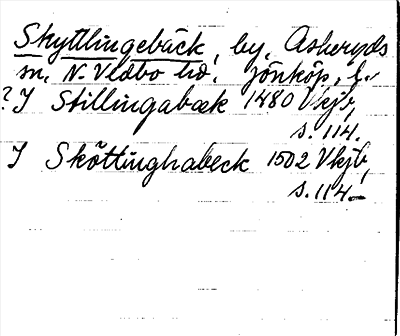 Skyttlingebäck, by, Asheryds
sn, N. Vedbo hd, Jönköp. l.
? J Stillingabæk 1480 Vkjb,
s. 114.
J Sköttinghabeck 1502 Vkjb,
s. 114